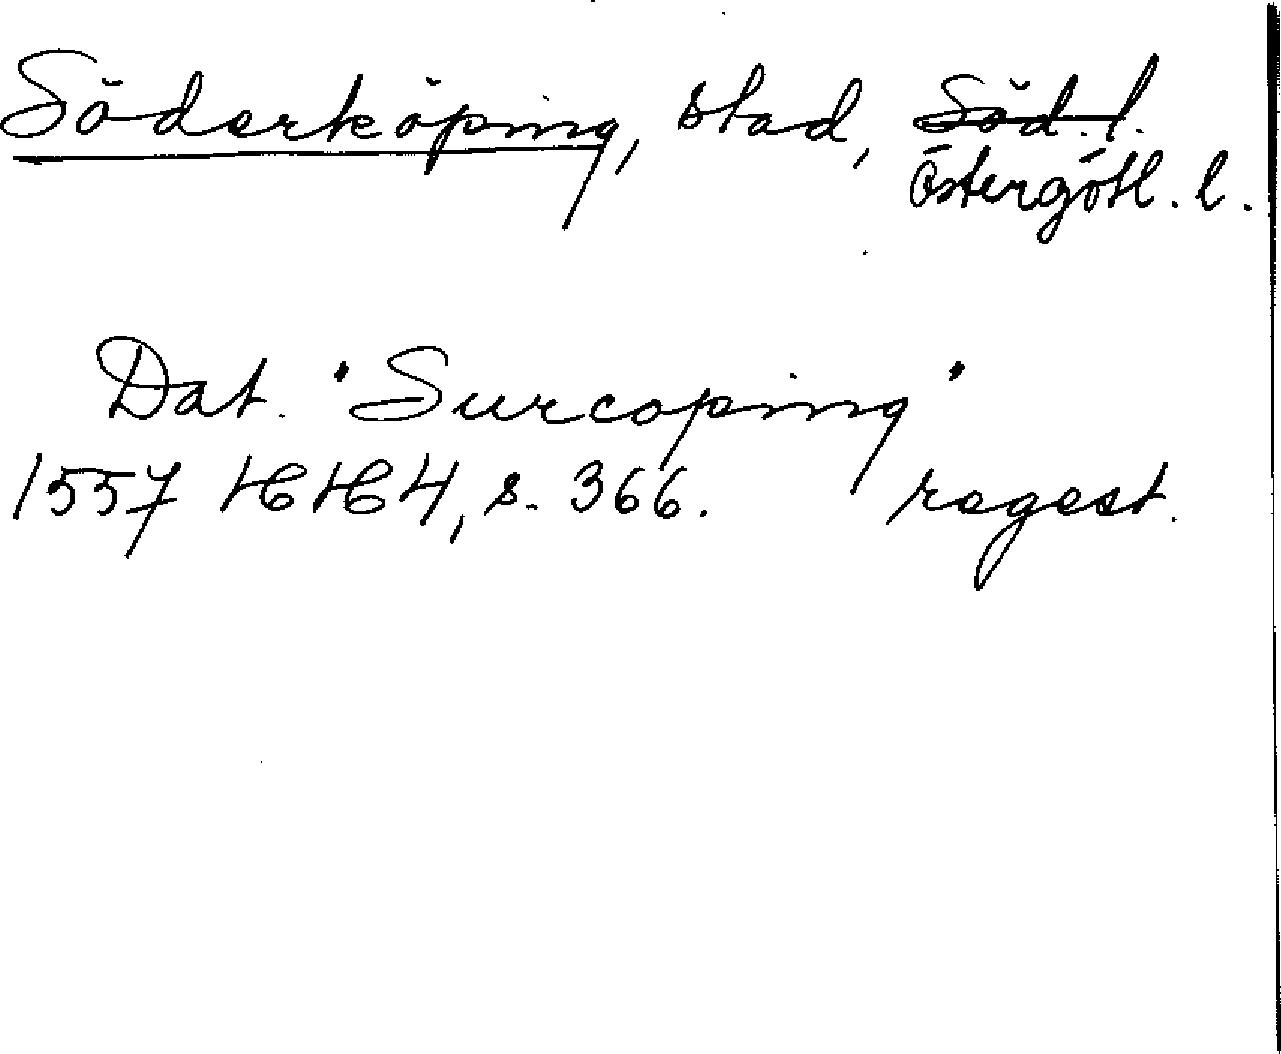 Söderköping, stad, Söd. l.
Östergötl. l.
Dat. "Surcoping"
1557 HH 4, s. 366. regest.